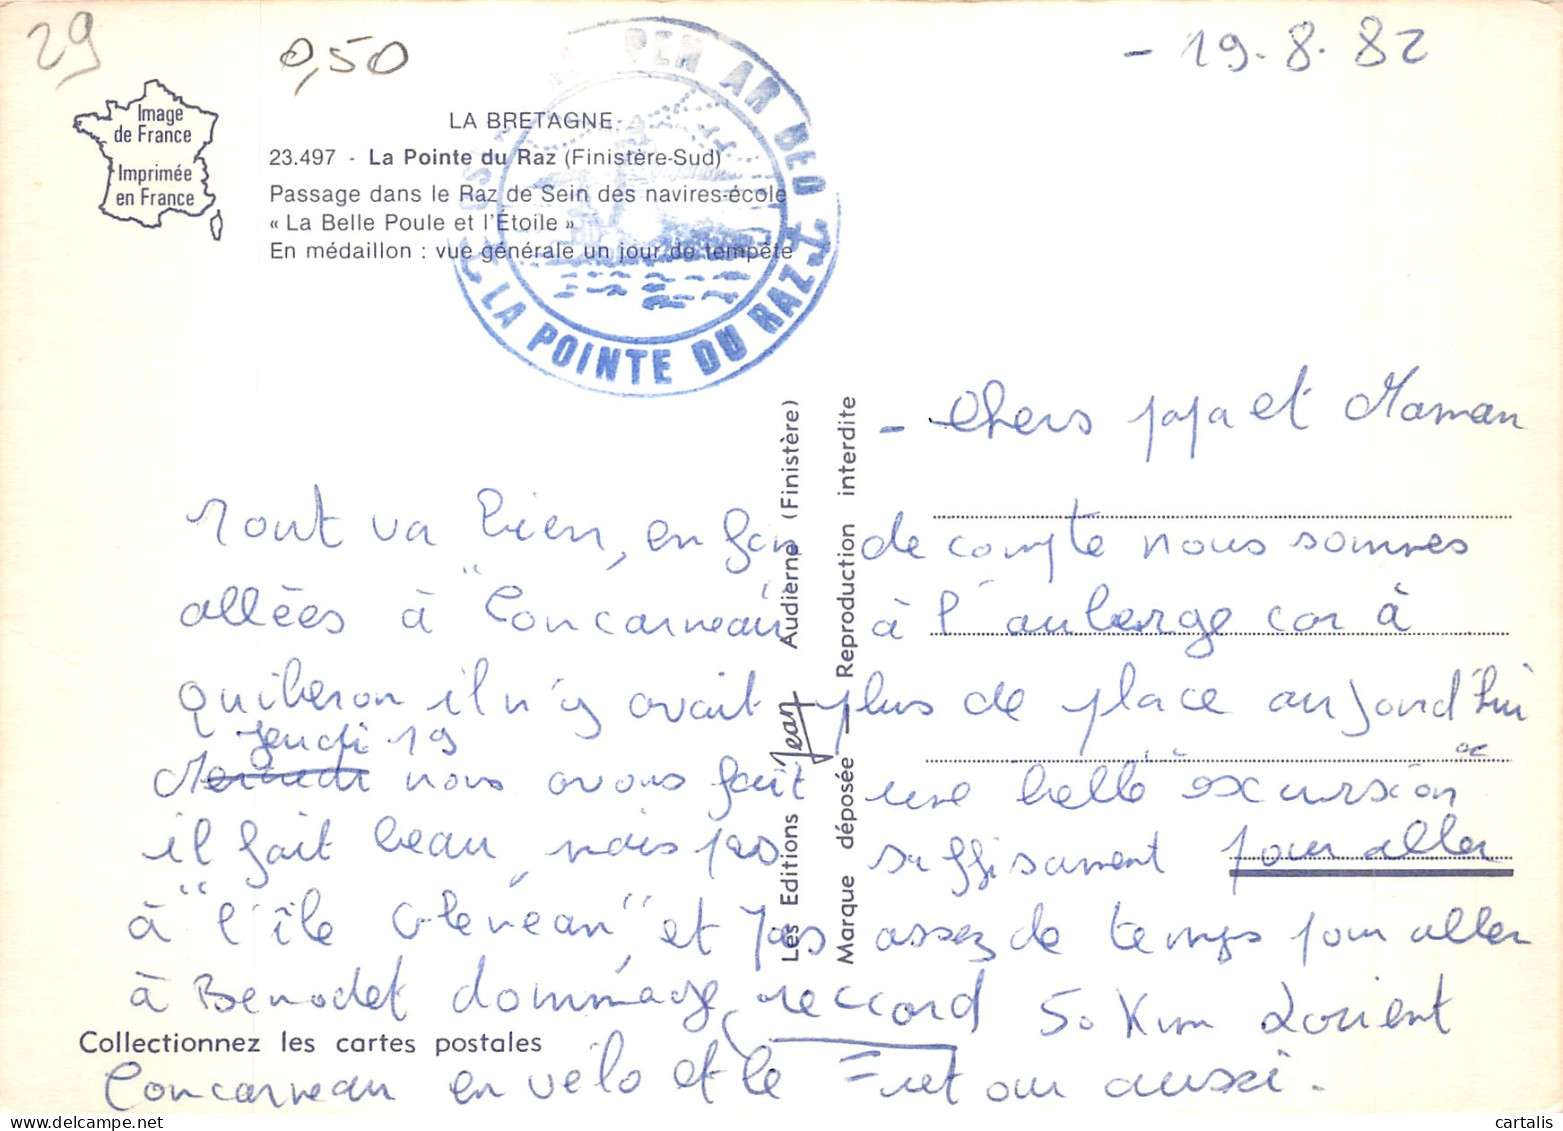 29
0,50
- 19.8.82
Image
de France
Imprimée
en France
LA BRETAGNE
23.497 - La Pointe du Raz (Finistère-Sud)
Passage dans le Raz de Sein des navires-école
« La Belle Poule et l'Étoile »
En médaillon : vue générale un jour de tempête
PEN AR BED
LA POINTE DU RAZ
- Chers papa et Maman
Tout va bien, en fin de compte nous sommes
allées à "Concarneau" à l'auberge car à
quiberon il n'y avait plus de place aujourd'hui
jeudi 19
nous avons fait une belle excursion
il fait beau, mais pas suffisament pour aller
à "l'île Glénéan" et pas assez de temps pour aller
à Benodet dommage, reccord 50 Km Lorient
Concarneau en vélo et le retour aussi.
Les Editions Jean Audierne (Finistère)
Marque déposée - Reproduction interdite
Collectionnez les cartes postales
cartalis